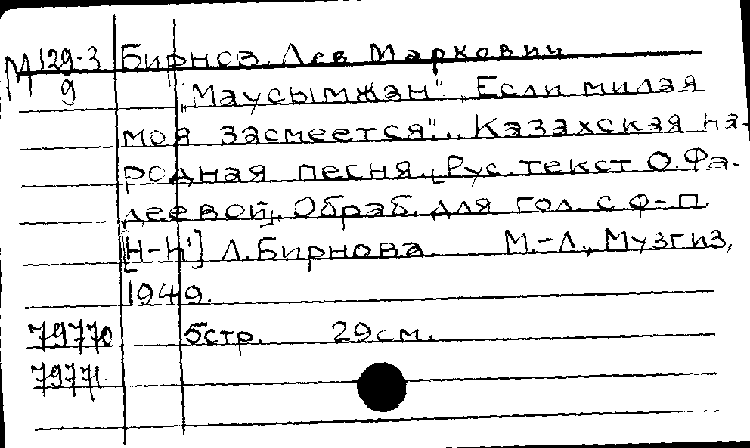 М 129-3 Бирнов, Лев Маркович
9 „Маусымжан“. „Если милая
моя засмеется“.. Казахская на-
родная песня. [Рус. текст О. Фа-
деевой]. Обраб. для гол. с ф-п.
[Н-н'] Л. Бирнова. М.-Л., Музгиз,
1949.
79770 5стр. 29см.
79771